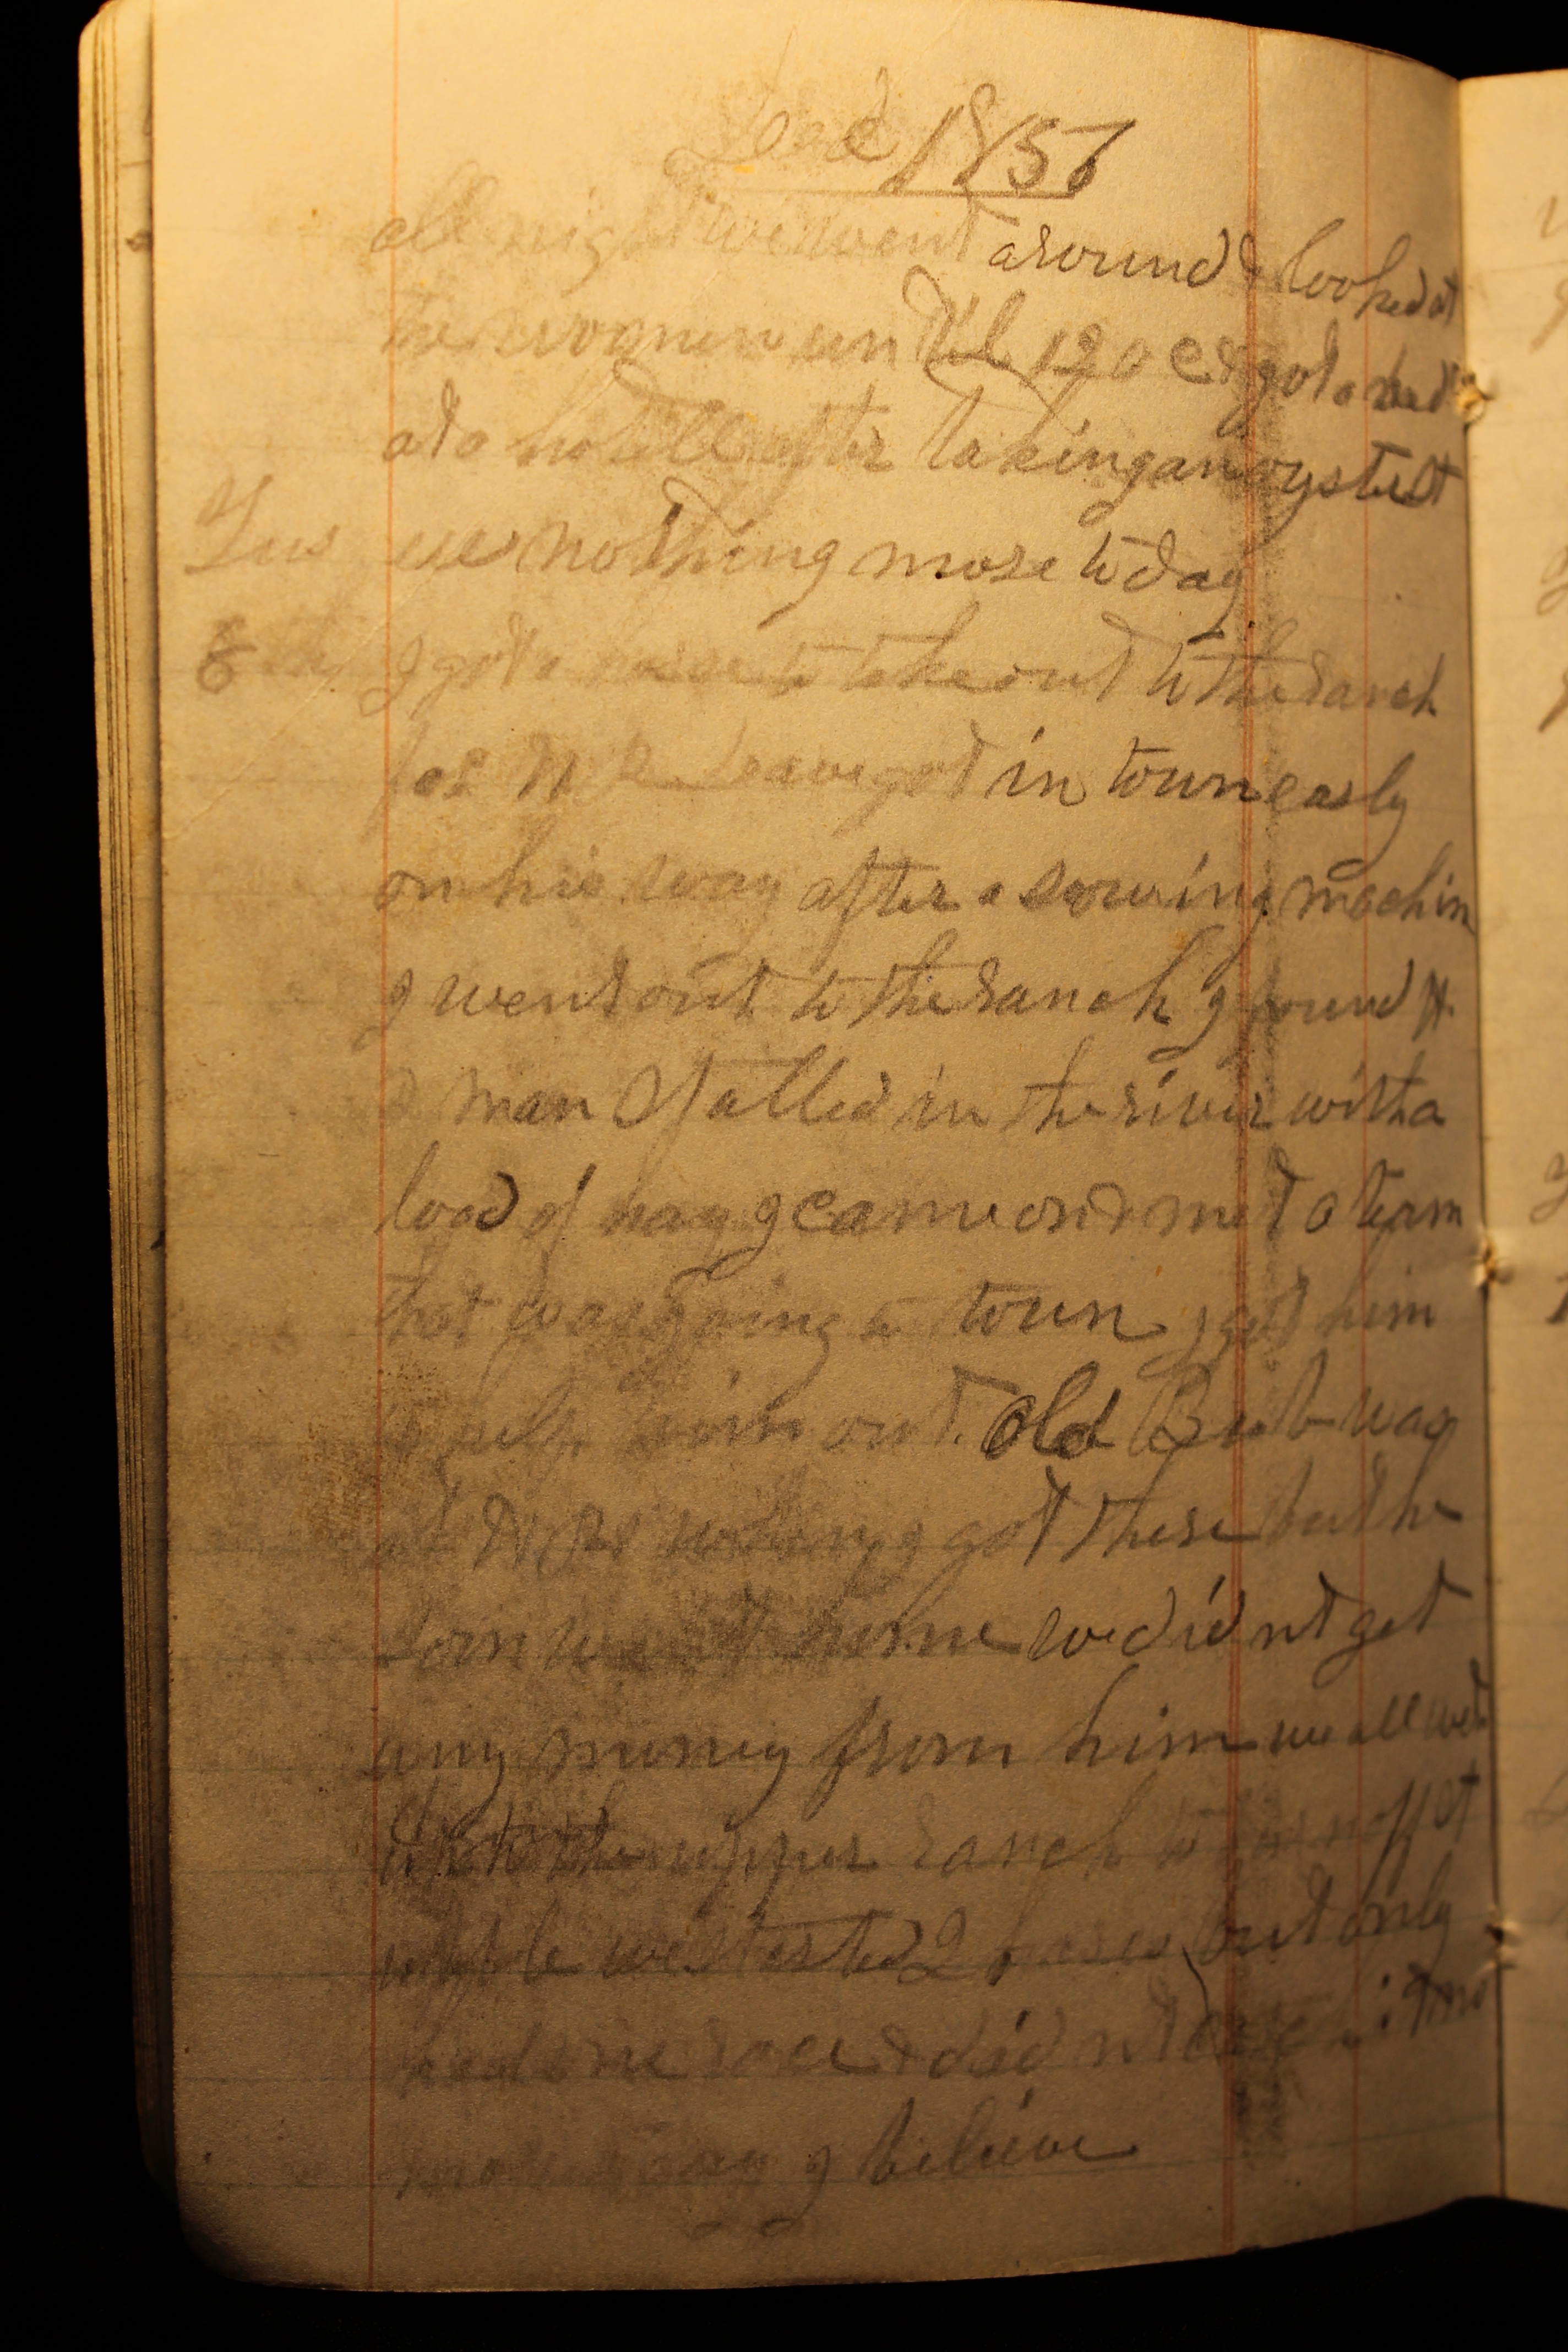 Dec 1857
all night we went around & looked at
the women un till 12 o c & got a bed
at a hotell after taking an oyster
Tus we nothing more to day
8 th I got a horse to take out to the ranch
for got in town early
on his way after a sowing machin
I went out to the ranch I found
a man Stalled in the river with a
load of hay I came on & met a team
that was going to town I got him
to help him out. Old Bub was
at when I got there but he
soon went home we did nt get
any money from him we all went
to the upper ranch to
we started 2 but only
had one race & did nt
more to day I believe